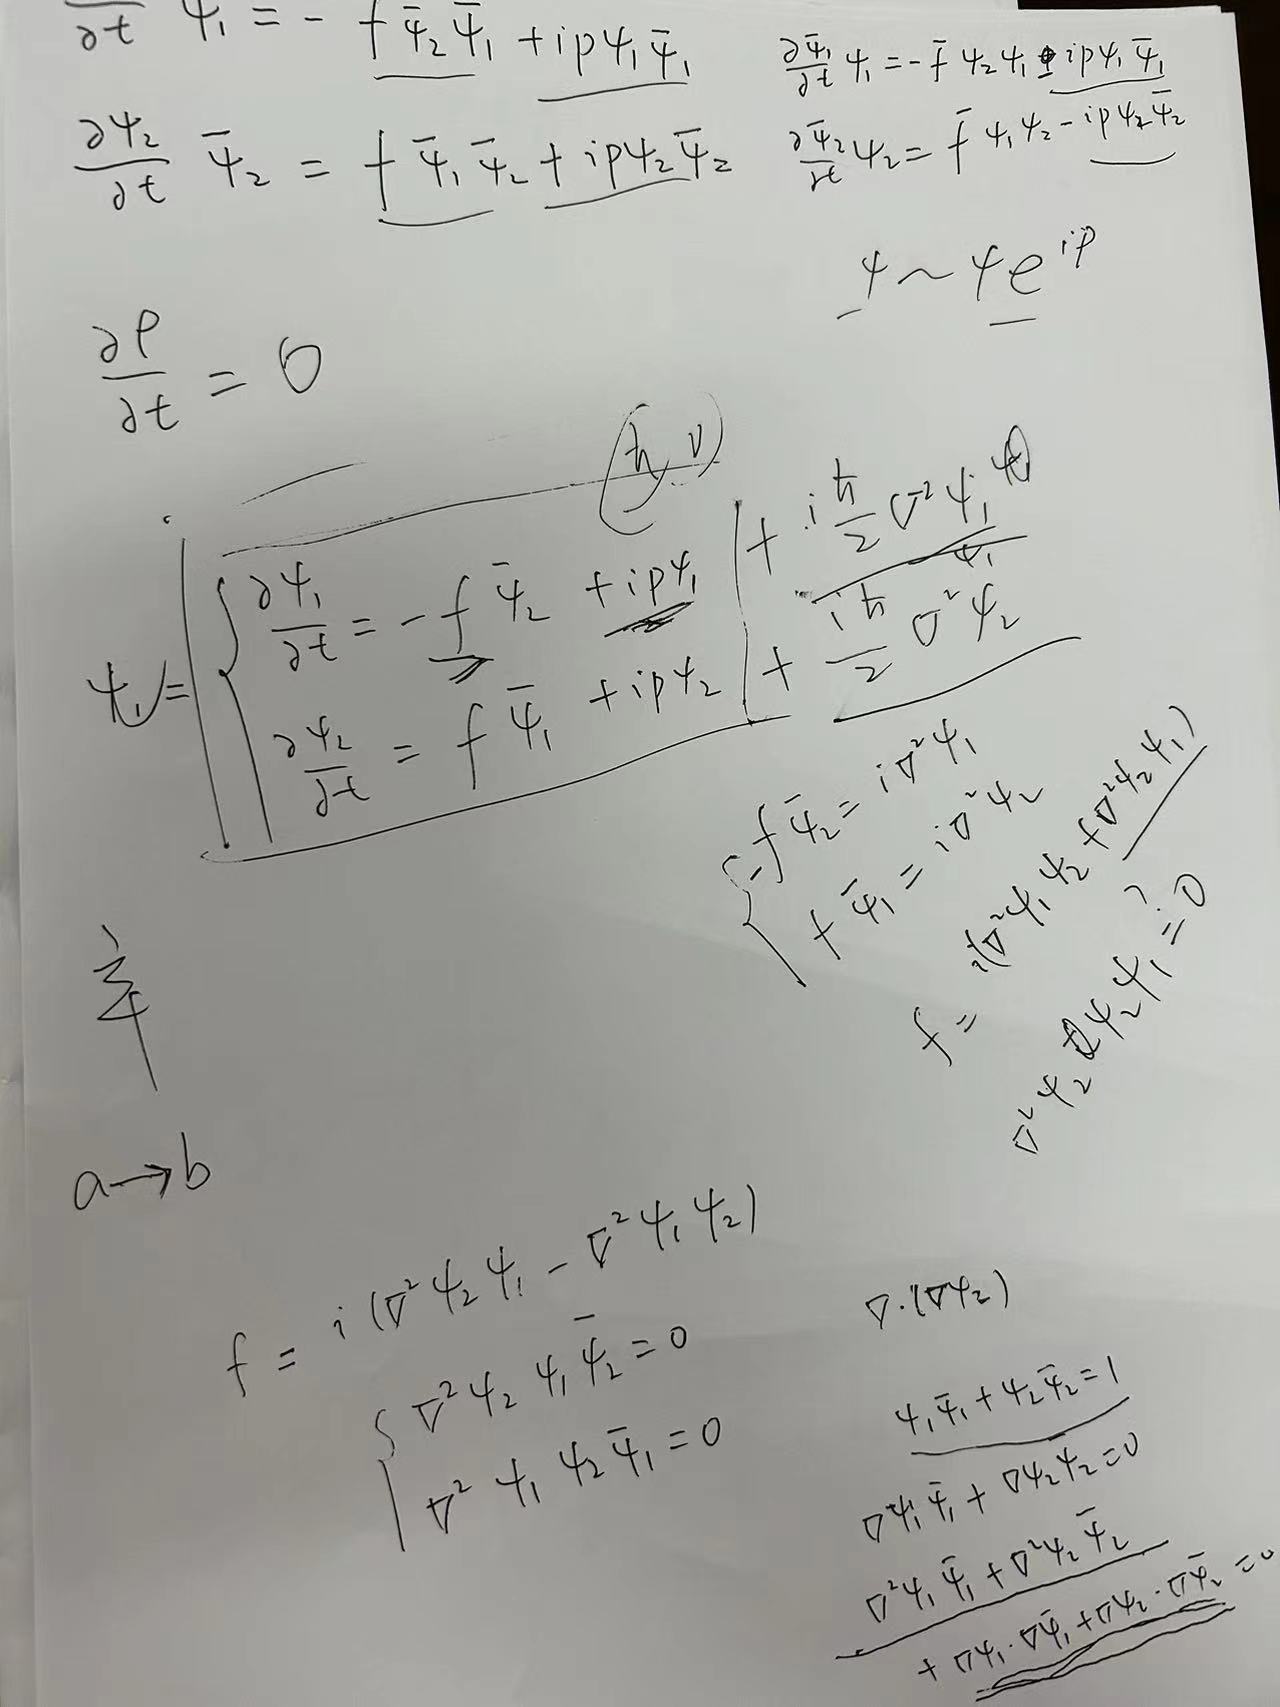 ∂/∂t ψ₁ = - f ψ̄₂ ψ̄₁ + ipψ₁ψ̄₁
∂ψ̄₁/∂t ψ₁ = - f̄ ψ₂ψ₁ - ipψ₁ψ̄₁
∂ψ₂/∂t ψ̄₂ = f ψ̄₁ ψ̄₂ + ipψ₂ψ̄₂
∂ψ̄₂/∂t ψ₂ = f̄ ψ₁ψ₂ - ipψ₂ψ̄₂
ψ ~ ψe^{ip}
∂ρ/∂t = 0
(ħ, ν)
∂ψ₁/∂t = - f ψ̄₂ + ipψ₁ + i ħ/2 ∇²ψ₁
ψ₁ =
∂ψ₂/∂t = f ψ̄₁ + ipψ₂ + iħ/2 ∇²ψ₂
-fψ̄₂ = i∇²ψ₁
fψ̄₁ = i∇²ψ₂
f = i(∇²ψ₁ψ₂ + ∇²ψ₂ψ₁)
?
∇²ψ₂ ψ₂ψ₁ = 0
a→b
f = i(∇²ψ₂ψ₁ - ∇²ψ₁ψ₂)
∇²ψ₂ ψ₁ψ̄₂ = 0
∇²ψ₁ ψ₂ψ̄₁ = 0
∇·(∇ψ₂)
ψ₁ψ̄₁ + ψ₂ψ̄₂ = 1
∇ψ₁ψ̄₁ + ∇ψ₂ψ₂ = 0
∇²ψ₁ψ̄₁ + ∇²ψ₂ψ̄₂
+ ∇ψ₁·∇ψ̄₁ + ∇ψ₂·∇ψ̄₂ = 0